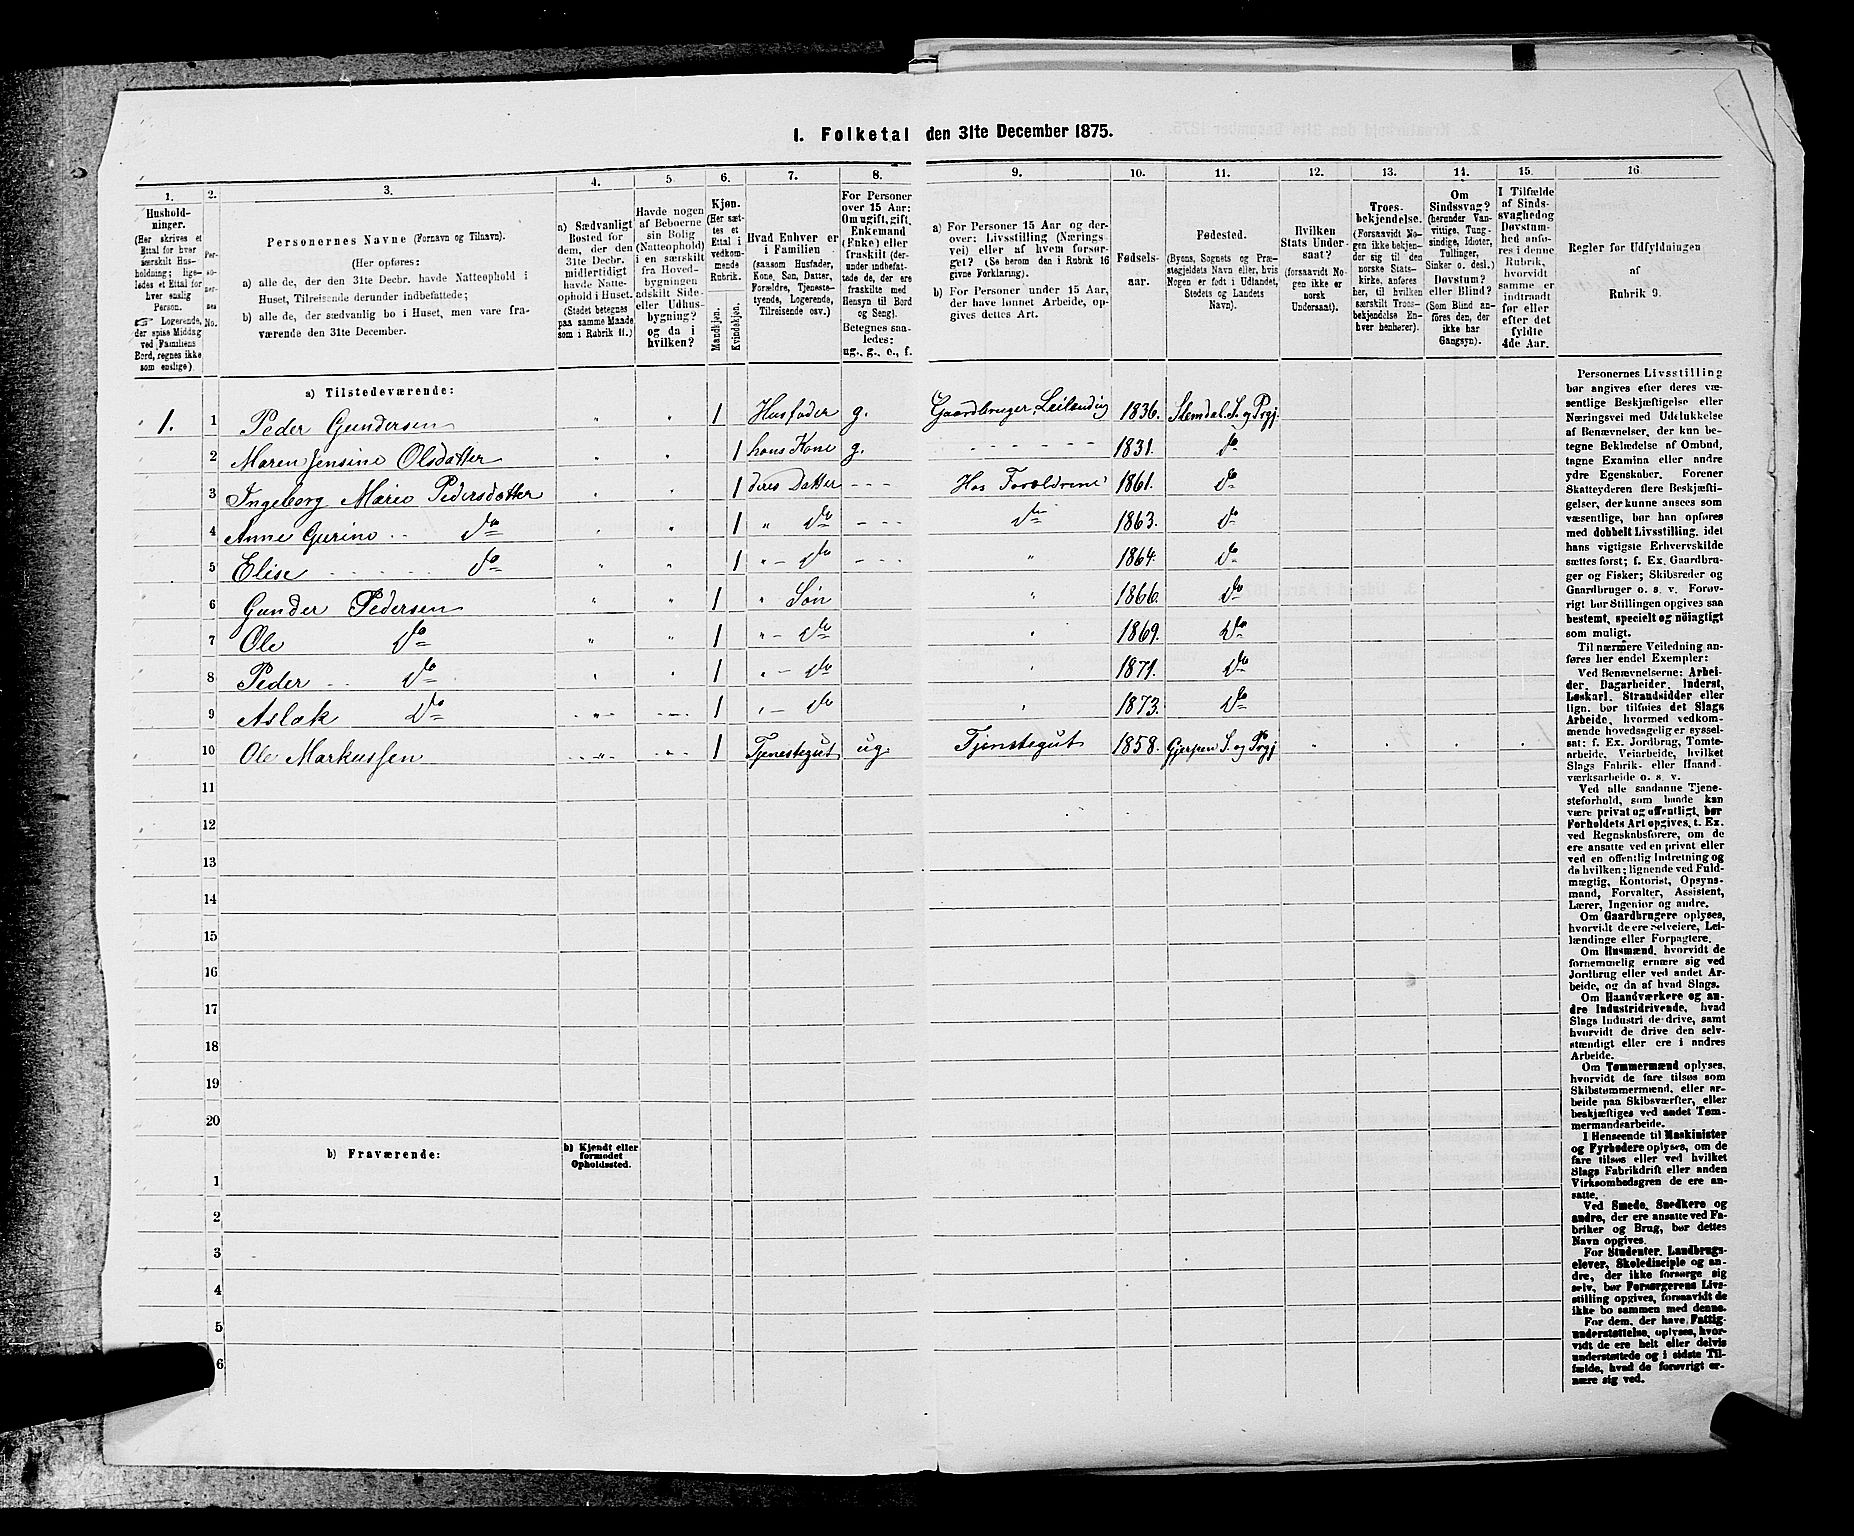 1. Folketal den 31te December 1875.
1.
Hushold-
ninger.
(Her skrives et
Ettal for hver
særskilt Hus-
holdning; lige-
ledes et Ettal for
hver enslig
Person.
Logerende,
der spise Middag
ved Familiens
Bord, regnes ikke
som enslige).
2.
Per-
so-
ner-
nes
No.
3.
Personernes Navne (Fornavn og Tilnavn).
(Her opføres:
a) alle de, der den 31te Decbr. havde Natteophold i
Huset, Tilreisende derunder indbefattede;
b) alle de, der sædvanlig bo i Huset, men vare fra-
værende den 31te December.
4.
a) Sædvanligt
Bosted for
dem, der den
31te Decbr.
midlertidigt
havde Natte-
ophold i Huset.
(Stedet betegnes
paa samme Maade
som i Rubrik 11.)
5
Havde nogen
af Beboerne
sin Bolig
(Natteophold)
i en særskilt
fra Hoved-
bygningen
adskilt Side-
eller Udhus-
bygning?
og da i
hvilken?
6.
Kjøn.
(Her sæt-
tes et
Ettal i
vedkom-
mende
Rubrik.
Mandkjøn.
Kvindekjøn.
7.
Hvad Enhver er
i Familien
(saasom Husfader,
Kone, Søn, Datter,
Forældre, Tjeneste-
tyende, Logerende,
Tilreisende osv.)
8.
For Personer
over 15 Aar:
Om ugift, gift,
Enkemand
(Enke) eller
fraskilt (der-
under indbefat-
tede de, der ere
fraskilte med
Hensyn til Bord
og Seng).
Betegnes saa-
ledes:
ug., g., e., f.
9.
a) For Personer 15 Aar og der-
over: Livsstilling (Nærings-
vei) eller af hvem forsør-
get? (Se herom den i Rubrik 16
givne Forklaring).
b) For Personer under 15 Aar,
der have lønnet Arbeide, op-
gives dettes Art.
10.
Fødsels-
aar.
11.
Fødested.
(Byens, Sognets og Præ-
stegjeldets Navn eller, hvis
Nogen er født i Udlandet,
Stedets og Landets
Navn).
12.
Hvilken
Stats Under-
saat?
(forsaavidt No-
gen ikke er
norsk
Undersaat).
13.
Troes-
bekjendelse.
(Forsaavidt No-
gen ikke bekjen-
der sig til den
norske Stats-
kirke, anføres
her, til hvilken
særskilt Troes-
bekjendelse En-
hver henhører).
14.
Om
Sindssvag?
(herunder Van-
vittige, Tung-
sindige, Idioter,
Tullinger,
Sinker o. desl.)
Døvstum?
eller Blind?
(Som Blind an-
føres den, der
ikke har
Gangsyn).
15.
I Tilfælde
af Sinds-
svaghed og
Døvstum-
hed anfø-
res i denne
Rubrik,
hvorvidt
samme er
indtraadt
før eller
efter det
fyldte
4de Aar.
16
Regler for Udfyldningen
af
Rubrik 9.
a) Tilstedeværende:
1. 1 Peder Gundersen " " 1 Husfader g. Gaardbruger, Leilænding 1836. Slemdal S. og Prgj
2 Maren Jensine Olsdatter " " 1 hans Kone g. - - - - - - 1831. Do
3 Ingeborg Marie Pedersdatter " " 1 deres Datter - - - Hos Forældrene 1861. Do
4 Anne Gurine .. Do " " 1 " Do - - - Do 1863. Do
5 Elise - - - - - - Do " " 1 " - Do - - - " 1864. Do
6 Gunder Pedersen " " 1 " Søn " 1866. Do
7 Ole Do " " 1 " - Do " 1869. Do
8 Peder .. Do " " 1 " - Do " 1871. Do
9 Aslak Do - " - - " - 1 " - Do " 1873. Do
10 Ole Markussen - " - - " - 1 Tjenestegut ug. Tjenstegut 1858. Gjerpen S. og Prgj " " " "
11
12
13
14
15
16
17
18
19
20
b) Fraværende:
b) Kjendt eller
formodet
Opholdssted.
1
2
3
4
5
6
Personernes Livsstilling
bør angives efter deres væ-
sentlige Beskjæftigelse eller
Næringsvei med Udelukkelse
af Benævnelser, der kun be-
tegne Beklædelse af Ombud,
tagne Examina eller andre
ydre Egenskaber. Forener
Skatteyderen flere Beskjæfti-
gelser, der kunne ansees som
væsentlige, bør han opføres
med dobbelt Livsstilling, idet
hans vigtigste Erhvervskilde
sættes først; f. Ex. Gaardbru-
ger og Fisker; Skibsreder og
Gaardbruger o. s. v. Forøv-
rigt bør Stillingen opgives saa
bestemt, specielt og nøiagtigt
som muligt.
Til nærmere Veiledning an-
føres her endel Exempler:
Ved Benævnelserne: Arbei-
der, Dagarbeider, Inderst,
Løskarl, Strandsidder eller
lign. bør tilføies det Slags
Arbeide, hvormed vedkom-
mende hovedsagelig er syssel-
sat; f. Ex. Jordbrug, Tomte-
arbeide, Veiarbeide, hvilket
Slags Fabrik- eller Haand-
værksarbeide o. s. v.
Ved alle saadanne Tjene-
steforhold, som baade kan
være privat og offentligt, bør
Forholdets Art opgives, t. Ex.
ved Regnskabsførere, om de
ere ansatte ved en privat eller
ved en offentlig Indretning og
da hvilken; lignende ved Fuld-
mægtig, Kontorist, Opsyns-
mand, Forvalter, Assistent,
Lærer, Ingeniør og andre.
Om Gaardbrugere oplyses,
hvorvidt de ere Selveiere, Lei-
lændinge eller Forpagtere.
Om Husmænd, hvorvidt de
fornemmelig ernære sig ved
Jordbrug eller ved andet Ar-
beide, og da af hvad Slags.
Om Haandværkere og an-
dre Industridrivende, hvad
Slags Industri de drive, samt
hvorvidt de drive den selv-
stændigt eller ere i andres
Arbeide.
Om Tømmermænd oplyses,
hvorvidt de fare tilsøs som
Skibstømmermænd, eller ar-
beide paa Skibsværfter, eller
beskjæftiges ved andet Tøm-
mermandsarbeide.
I Henseende til Maskinister
og Fyrbødere oplyses, om de
fare tilsøs eller ved hvilket
Slags Fabrikdrift eller anden
Virksombedsgren de ere an-
satte.
Ved Smede, Snedkere og
andre, der ere ansatte ved Fa-
briker og Brug, bør dettes
Navn opgives.
For Studenter, Landbrugs-
elever, Skoledisciple og an-
dre, der ikke forsørge sig
selv, bør Forsørgerens Livs-
stilling opgives, forsaavidt de
ikke bo sammen med denne.
For dem, der have Fattig-
understøttelse, oplyses, hvor-
vidt de ere helt eller delvis
understøttede og i sidste Til-
fælde, hvad de forøvrigt er-
nære sig ved.